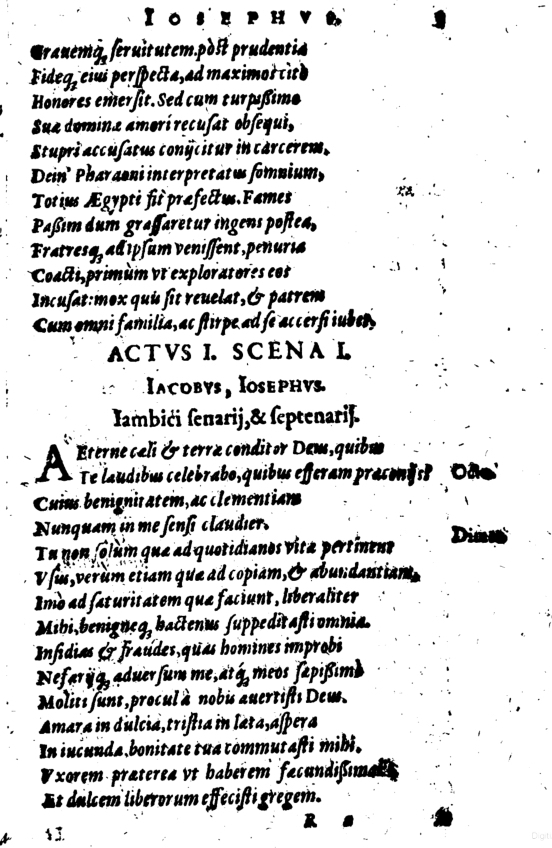 IOSEPHVS.
Grauemq́; seruitutem. pòst prudentia
Fideq́; eius perspecta, ad maximos citò
Honores emersit. Sed cum turpißimo
Suæ dominæ amori recusat obsequi,
Stupri accusatus conijcitur in carcerem.
Dein' Pharaoni interpretatus somnium,
Totius Ægypti fit præfectus. Fames
Paßim dum grassaretur ingens postea,
Fratresq́; ad ipsum venissent, penuria
Coacti, primùm vt exploratores eos
Incusat: mox quis sit reuelat, & patrem
Cum omni familia, ac stirpe ad se accersi iubet.
ACTVS I. SCENA I.
IACOBVS, IOSEPHVS.
Iambici senarij, & septenarij.
AEterne cæli & terræ conditor Deus, quibus
Te laudibus celebrabo, quibus efferam præconijs?
Cuius benignitatem, ac clementiam
Nunquam in me sensi claudier.
Tu non solum quæ ad quotidianos vitæ pertinent
Vsus, verum etiam quæ ad copiam, & abundantiam,
Imò ad saturitatem quæ faciunt, liberaliter
Mihi, benigneq́; hactenus suppeditasti omnia.
Insidias & fraudes, quas homines improbi
Nefarijq́; aduersum me, atq́; meos sæpißimè
Moliti sunt, procul à nobis auertisti Deus.
Amara in dulcia, tristia in læta, aspera
In iucunda, bonitate tua commutasti mihi.
Vxorem præterea vt haberem fæcundißimam
Et dulcem liberorum effecisti gregem.
R